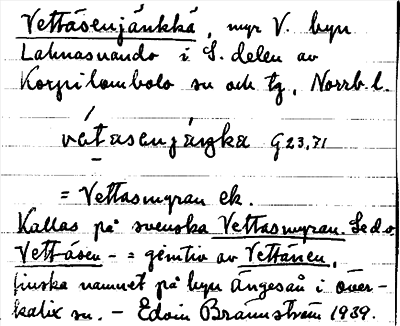 Vettäsenjänkkä, myr V. byn
Lahnasuando i S. delen av
Korpilombolo sn och tg, Norrb. l.
vétasenjáŋka G 23,71
= Vettasmyran ek.
Kallas på svenska Vettasmyran. Se d. o.
Vettäsen - = genitiv av Vettänen,
finska namnet på byn Ängeså i Över-
kalix sn. - Edvin Brännström 1939.